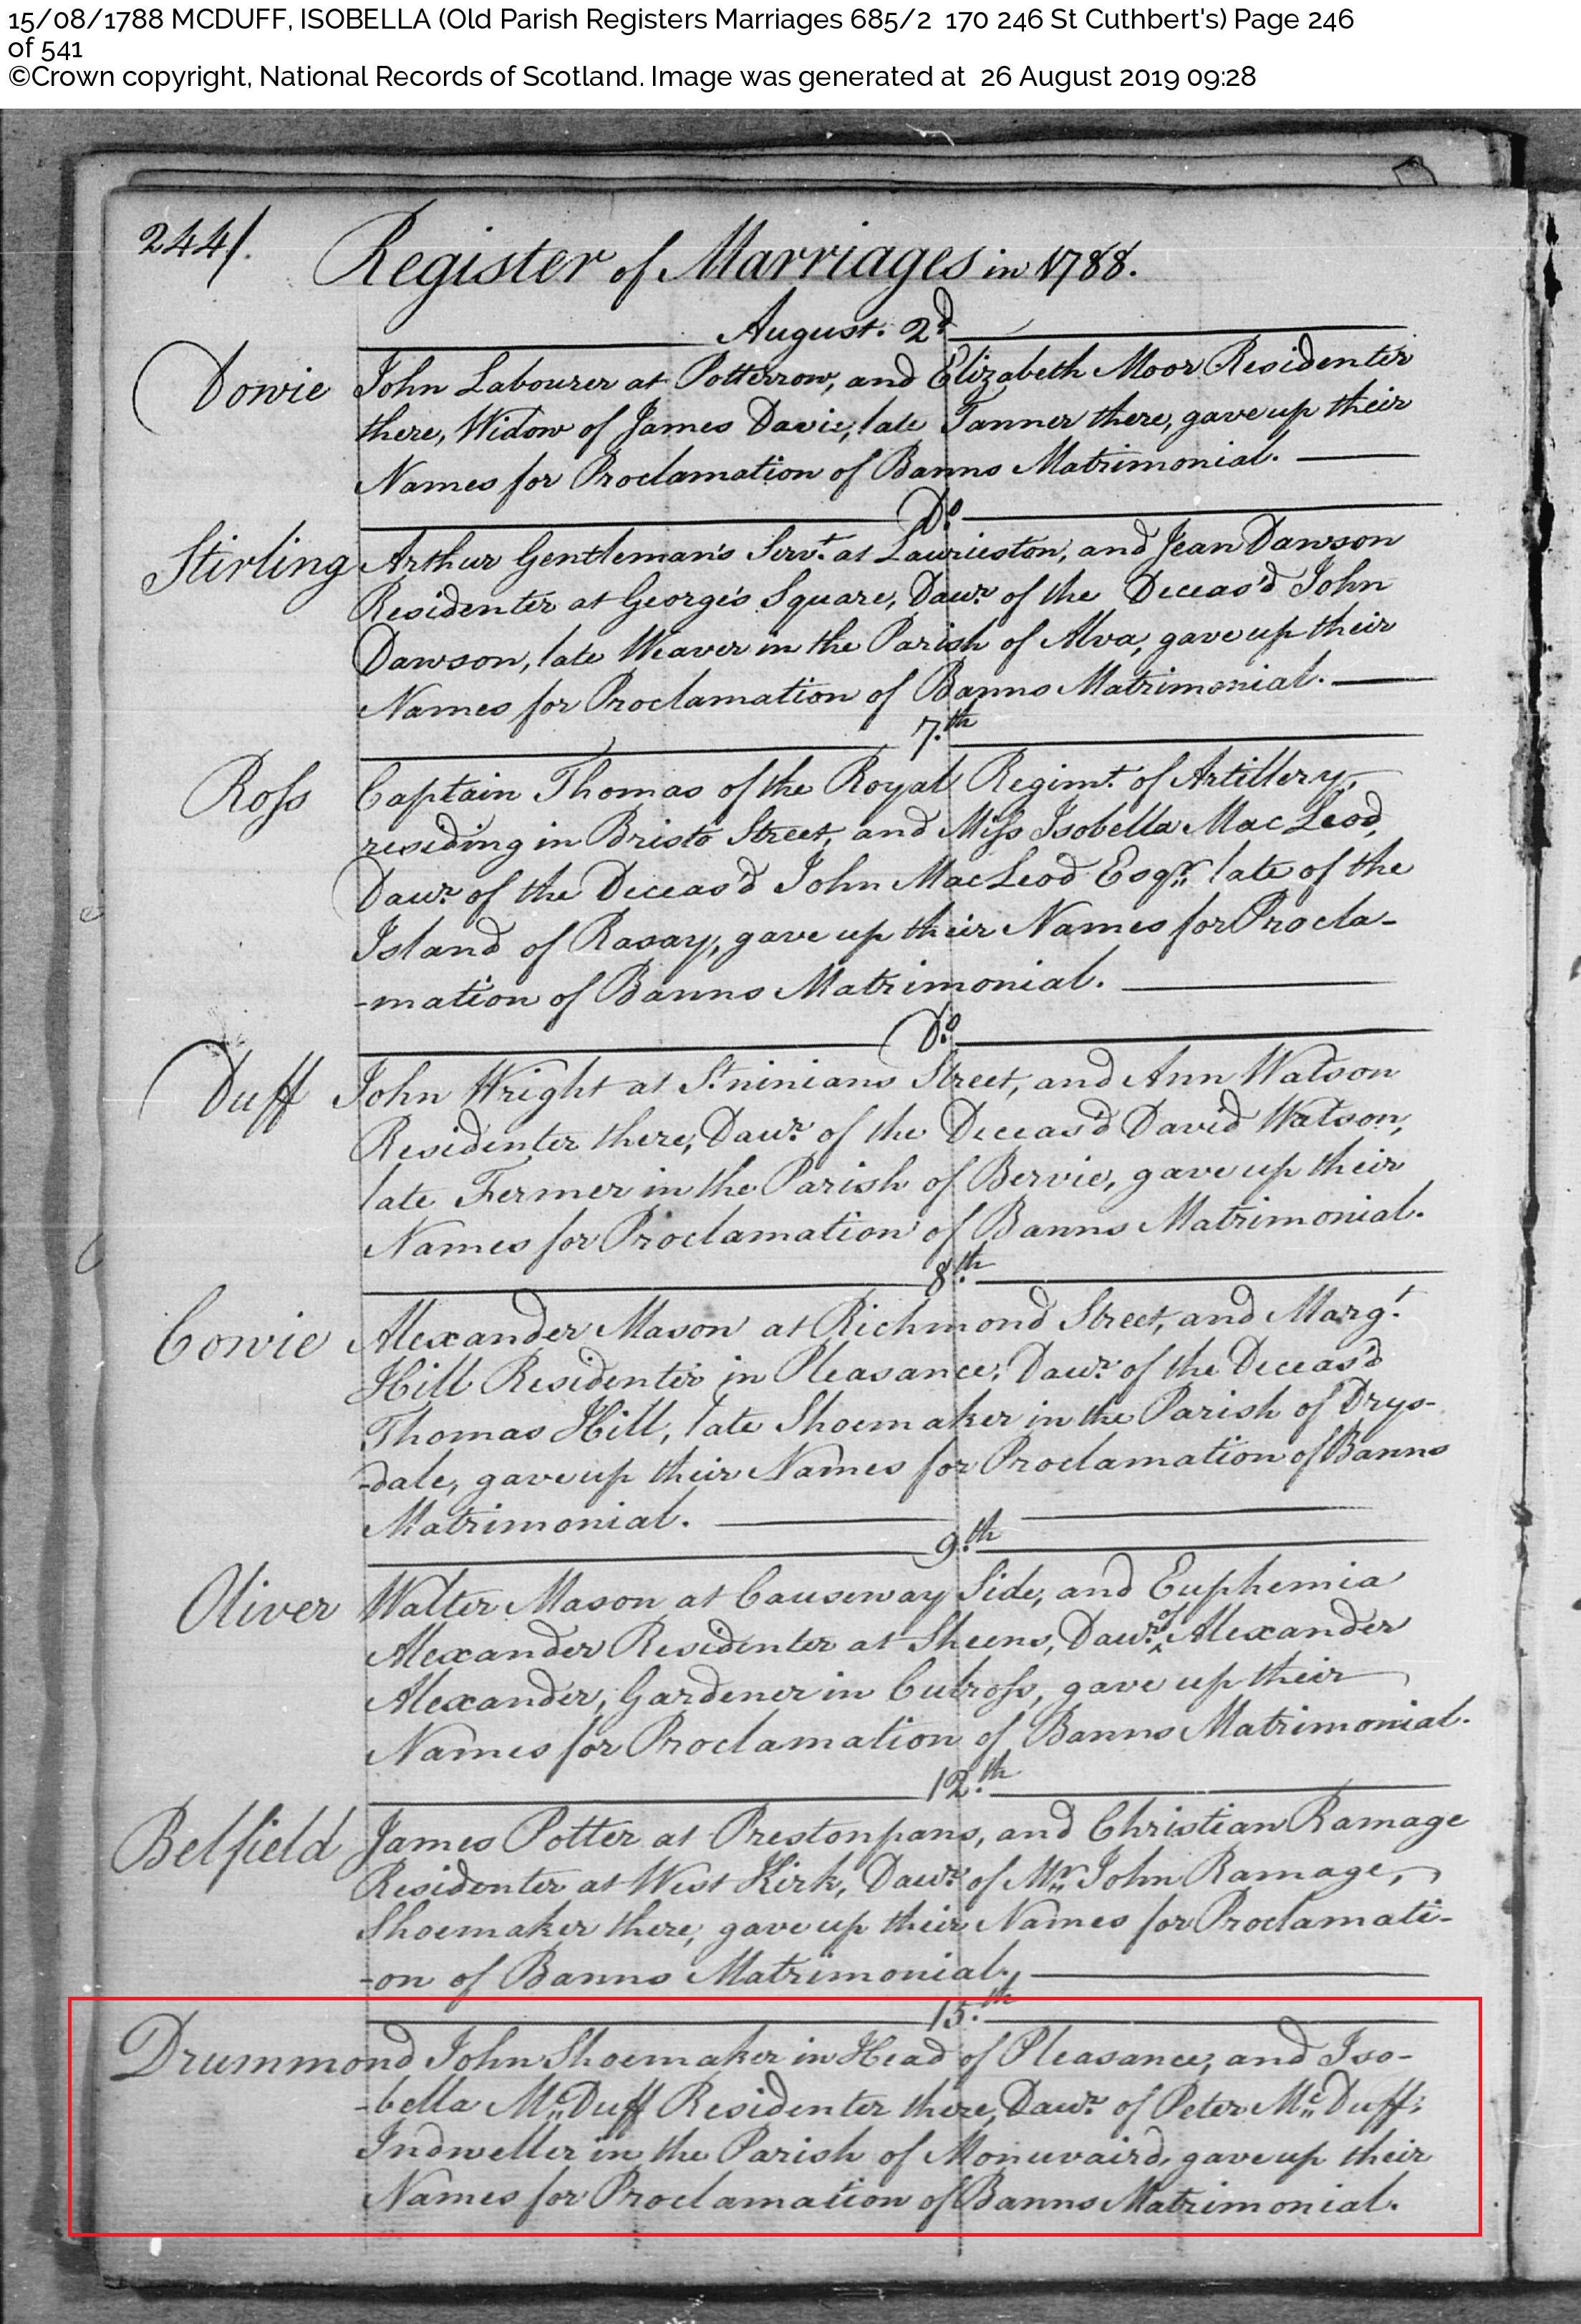 15/08/1788 MCDUFF, ISOBELLA (Old Parish Registers Marriages 685/2 170 246 St Cuthbert's) Page 246
of 541
©Crown copyright, National Records of Scotland. Image was generated at 26 August 2019 09:28
244/.
Register of Marriages in 1788.
August. 2d
Dowie John Labourer at Potterrow, and Elizabeth Moor Residenter
there, Widow of James Davie, late Tanner there, gave up their
Names for Proclamation of Banns Matrimonial.
Do
Stirling Arthur Gentleman's Servt. at Laurieston, and Jean Dawson
Residenter at George's Square, Dawr. of the Deceas'd John
Dawson, late Weaver in the Parish of Alva, gave up their
Names for Proclamation of Banns Matrimonial.
7.th
Ross Captain Thomas of the Royal Regimt. of Artillery,
residing in Bristo Street, and Miss Isobella MacLeod,
Dawr. of the Deceas'd John MacLeod Esqr. late of the
Island of Rasay, gave up their Names for Procla-
-mation of Banns Matrimonial.
Do
Duff John Wright at St. ninians Street, and Ann Watson
Residenter there, Dawr. of the Deceas'd David Watson,
late Fermer in the Parish of Bervie, gave up their
Names for Proclamation of Banns Matrimonial.
8.th
Cowie Alexander Mason at Richmond Street, and Margt.
Hill Residenter in Pleasance, Dawr. of the Deceas'd
Thomas Hill, late Shoemaker in the Parish of Drys-
-dale, gave up their Names for Proclamation of Banns
Matrimonial.
9.th
Oliver Walter Mason at Causeway Side, and Euphemia
Alexander Residenter at Sheens, Dawr. of Alexander
Alexander, Gardener in Culross, gave up their
Names for Proclamation of Banns Matrimonial.
12.th
Belfield James Potter at Prestonpans, and Christian Ramage
Residenter at West Kirk, Dawr. of Mr. John Ramage,
Shoemaker there, gave up their Names for Proclamati-
-on of Banns Matrimonial.
15.th
Drummond John Shoemaker in Head of Pleasance, and Iso-
-bella Mc.Duff Residenter there, Dawr. of Peter Mc.Duff,
Indweller in the Parish of Monuvaird, gave up their
Names for Proclamation of Banns Matrimonial.